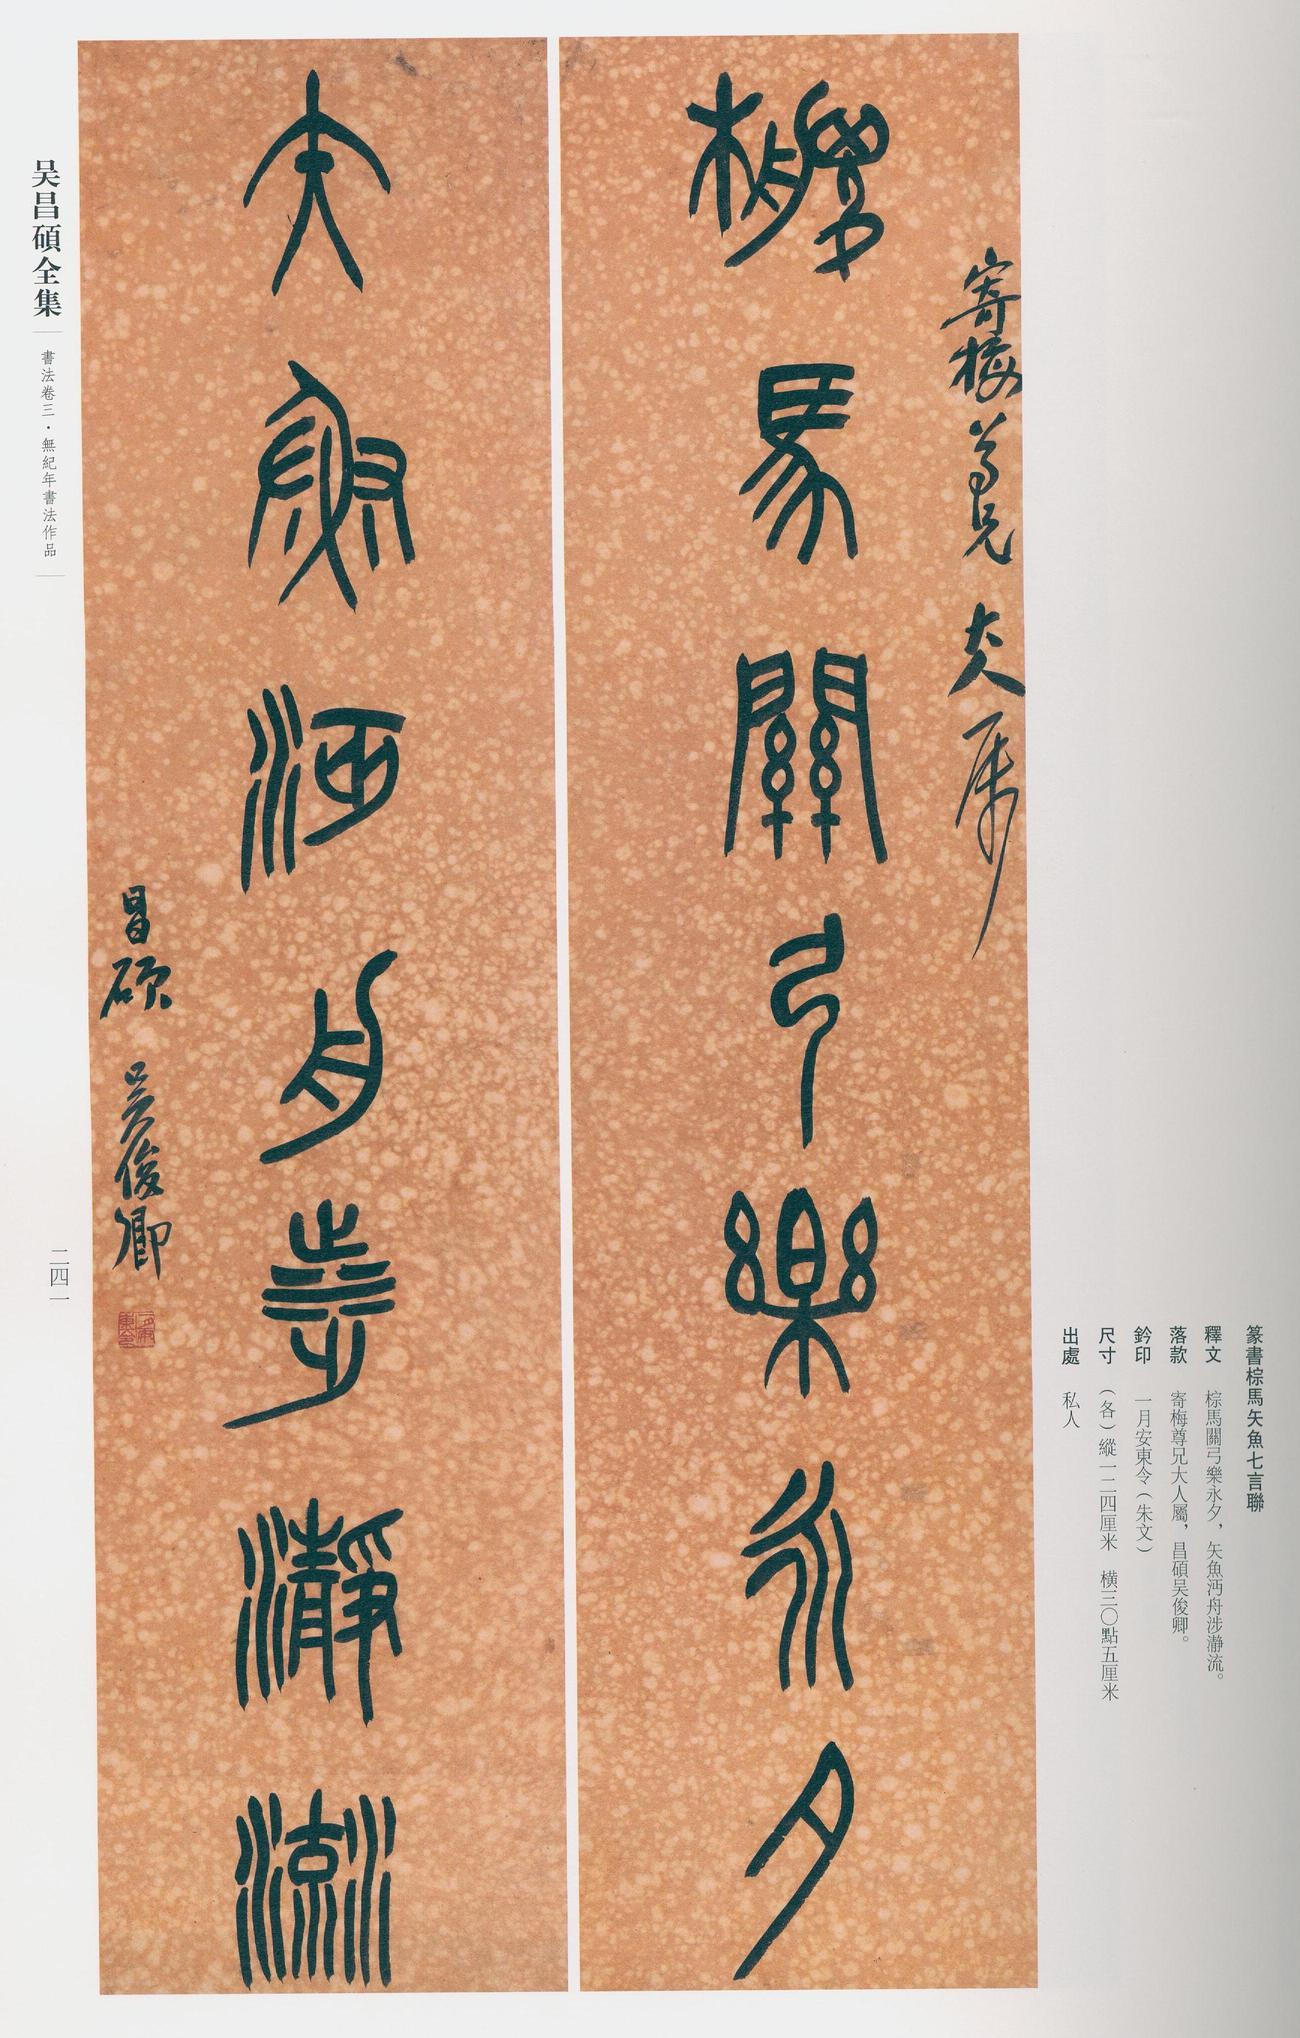 篆書棕馬矢魚七言聯
釋文 棕馬關弓樂永夕，矢魚沔舟涉瀞流。
落款 寄梅尊兄大人屬，昌碩吴俊卿。
鈐印 一月安東令（朱文）
尺寸 （各）縱一二四厘米 横三〇點五厘米
出處 私人
寄梅尊兄大人屬
棕馬關弓樂永夕
矢魚沔舟涉瀞流
昌碩吴俊卿
一月安東令
吴昌碩全集
書法卷三·無紀年書法作品
二四一